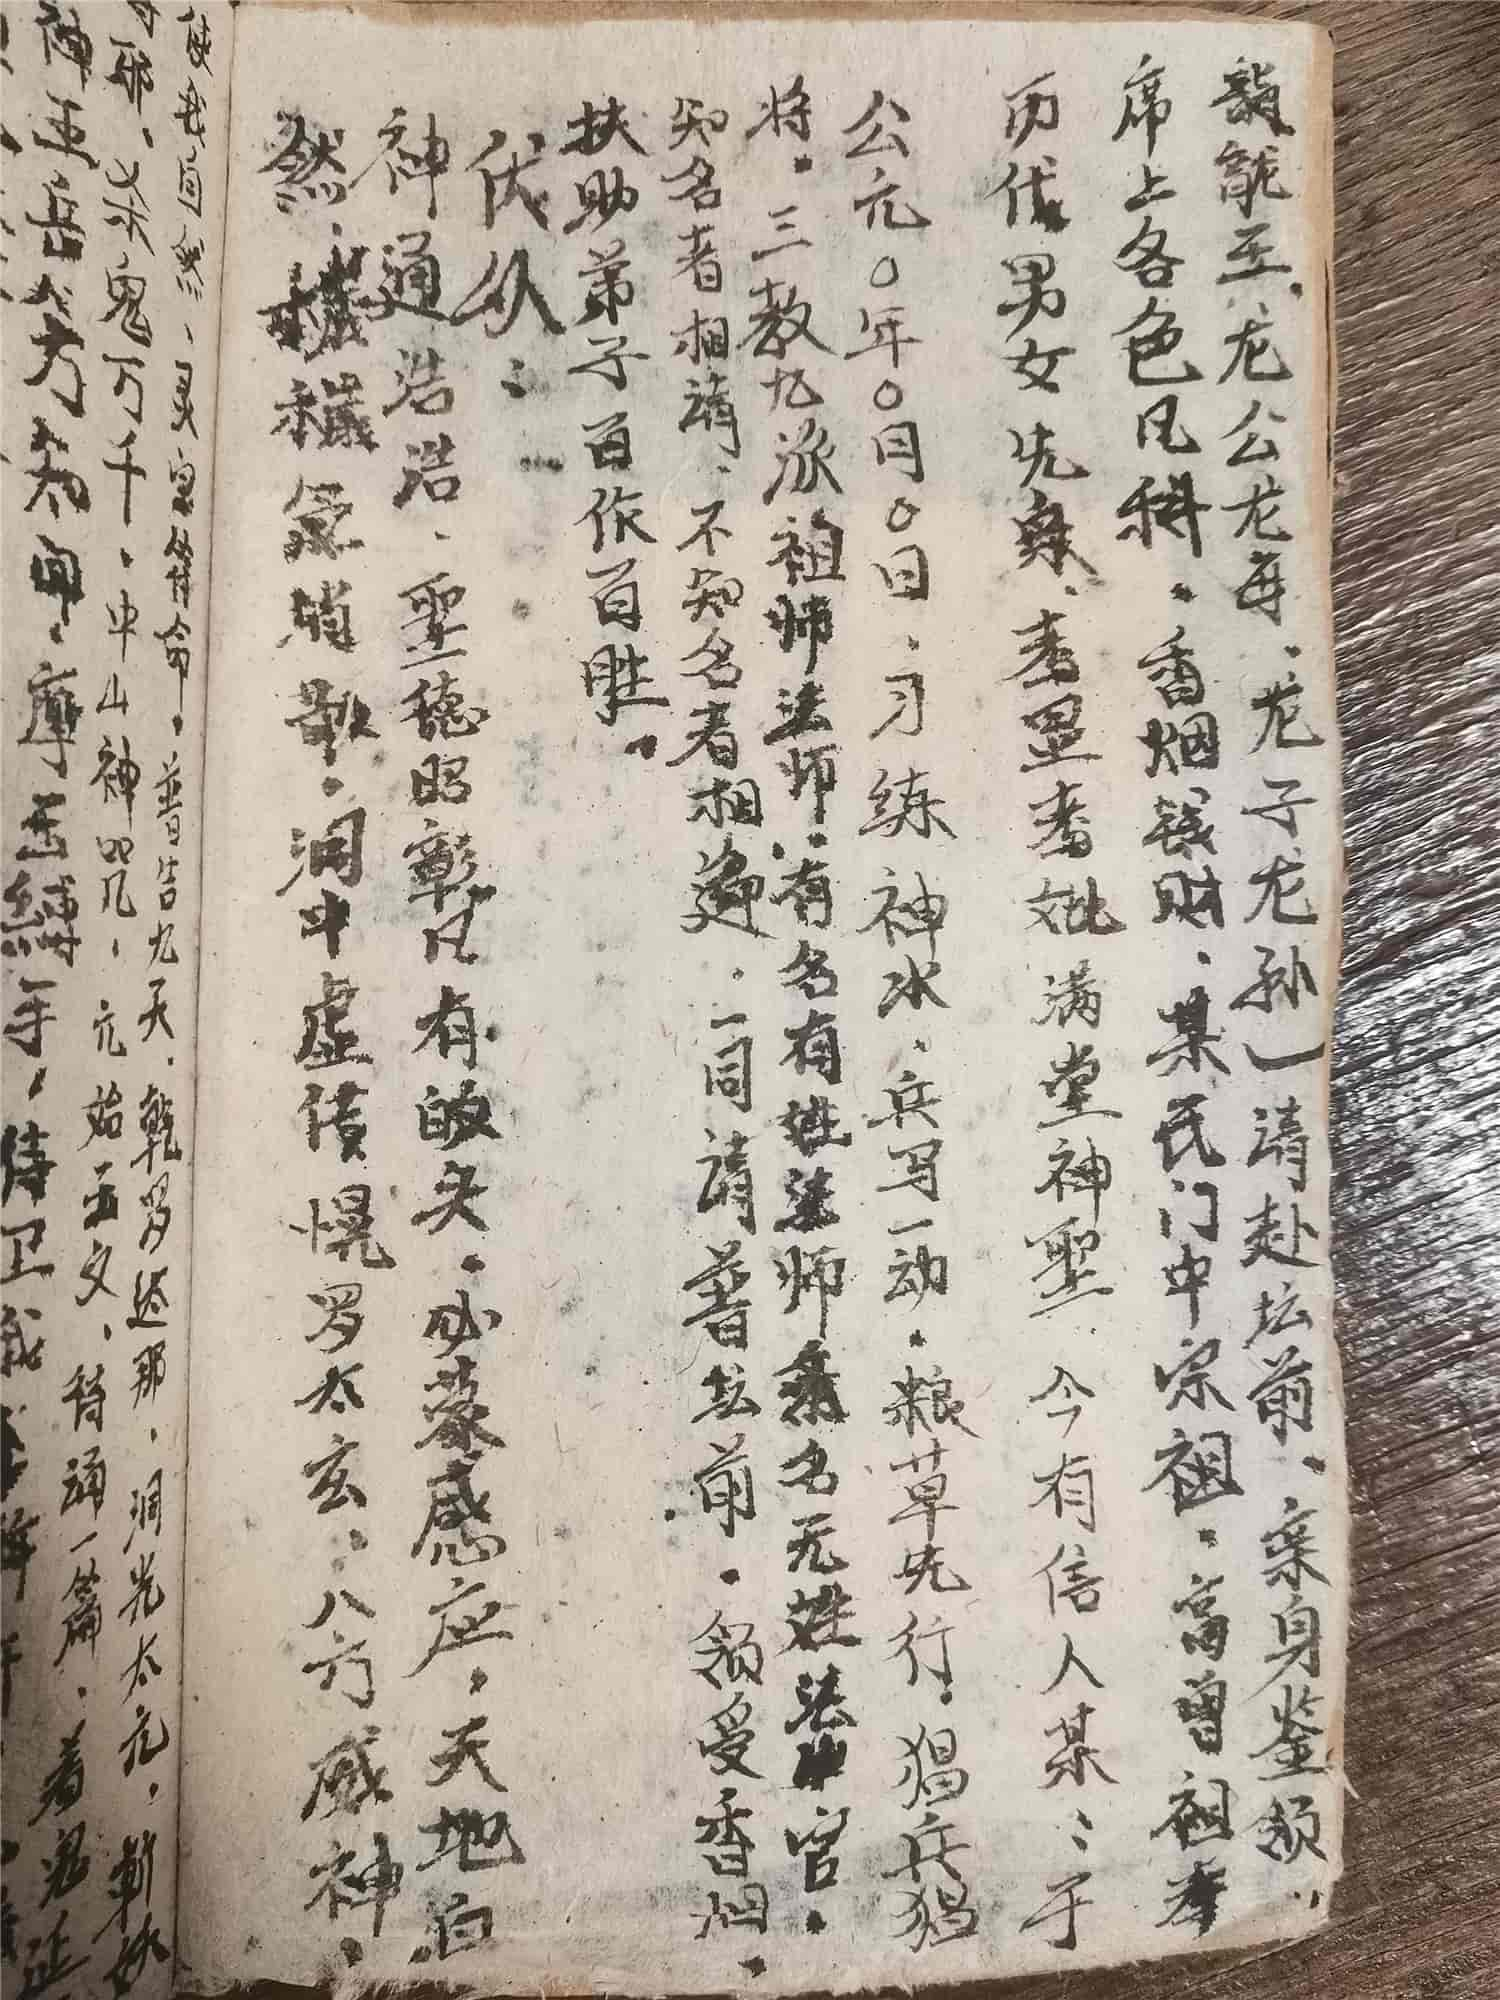 龙王、龙公龙母、龙子龙孙一请赴坛前、亲身鉴领、
席上各色凡科、香烟钱财、某氏门中宗祖、高曾祖考
历代男女先灵、考墨考妣满堂神圣、今有信人某：于
公元〇年〇月〇日、习练神水、兵马一动、粮草先行、猖兵猖
将、三教九派祖师法师、有名有姓法师无名无姓法官、
知名者相请、不知名者相迎、一同请普坛前、领受香烟、
扶助弟子百作百胜。
伏以：
神通浩浩、圣德昭彰凡有的头、必蒙感应、天地自
然、秽气消散、洞中虚 幌罗太玄、八方威神、
使我自然、灵宝符命、普告九天、乾罗达那、洞光太元、斩妖
邪、杀鬼万千、中山神咒、元始玉文、持诵一篇、着鬼延
神五岳、八方 摩王缚手、侍卫我